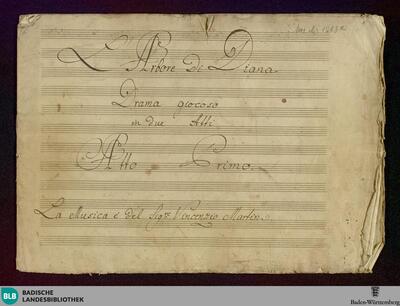 L'Arbore Di Diana.
Drama giocoso
in due Atti
Atto Primo.
La Musica è del Sigr. Vincenzio Martin.
BLB
BADISCHE
LANDESBIBLIOTHEK
Baden-Württemberg